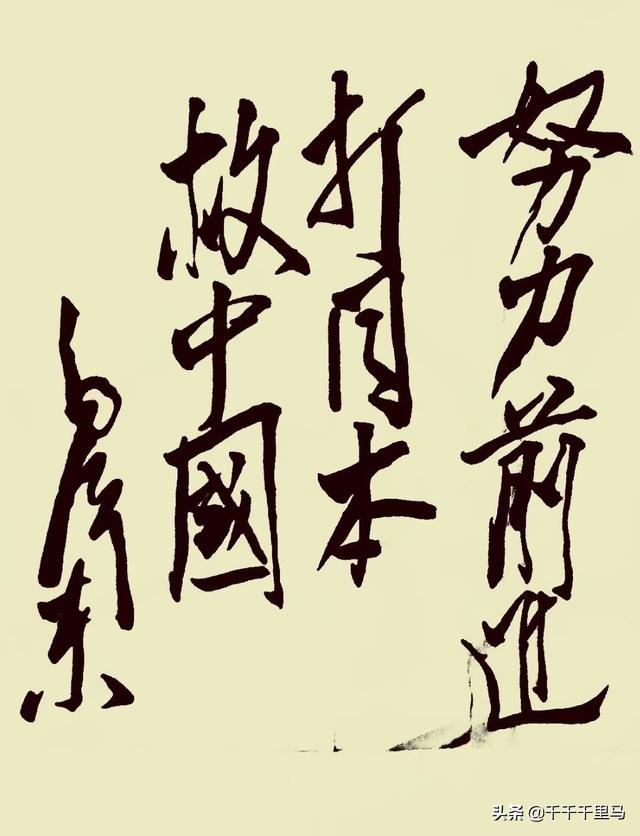 努力前進
打日本
救中國
毛澤東
头条 @千千千里马